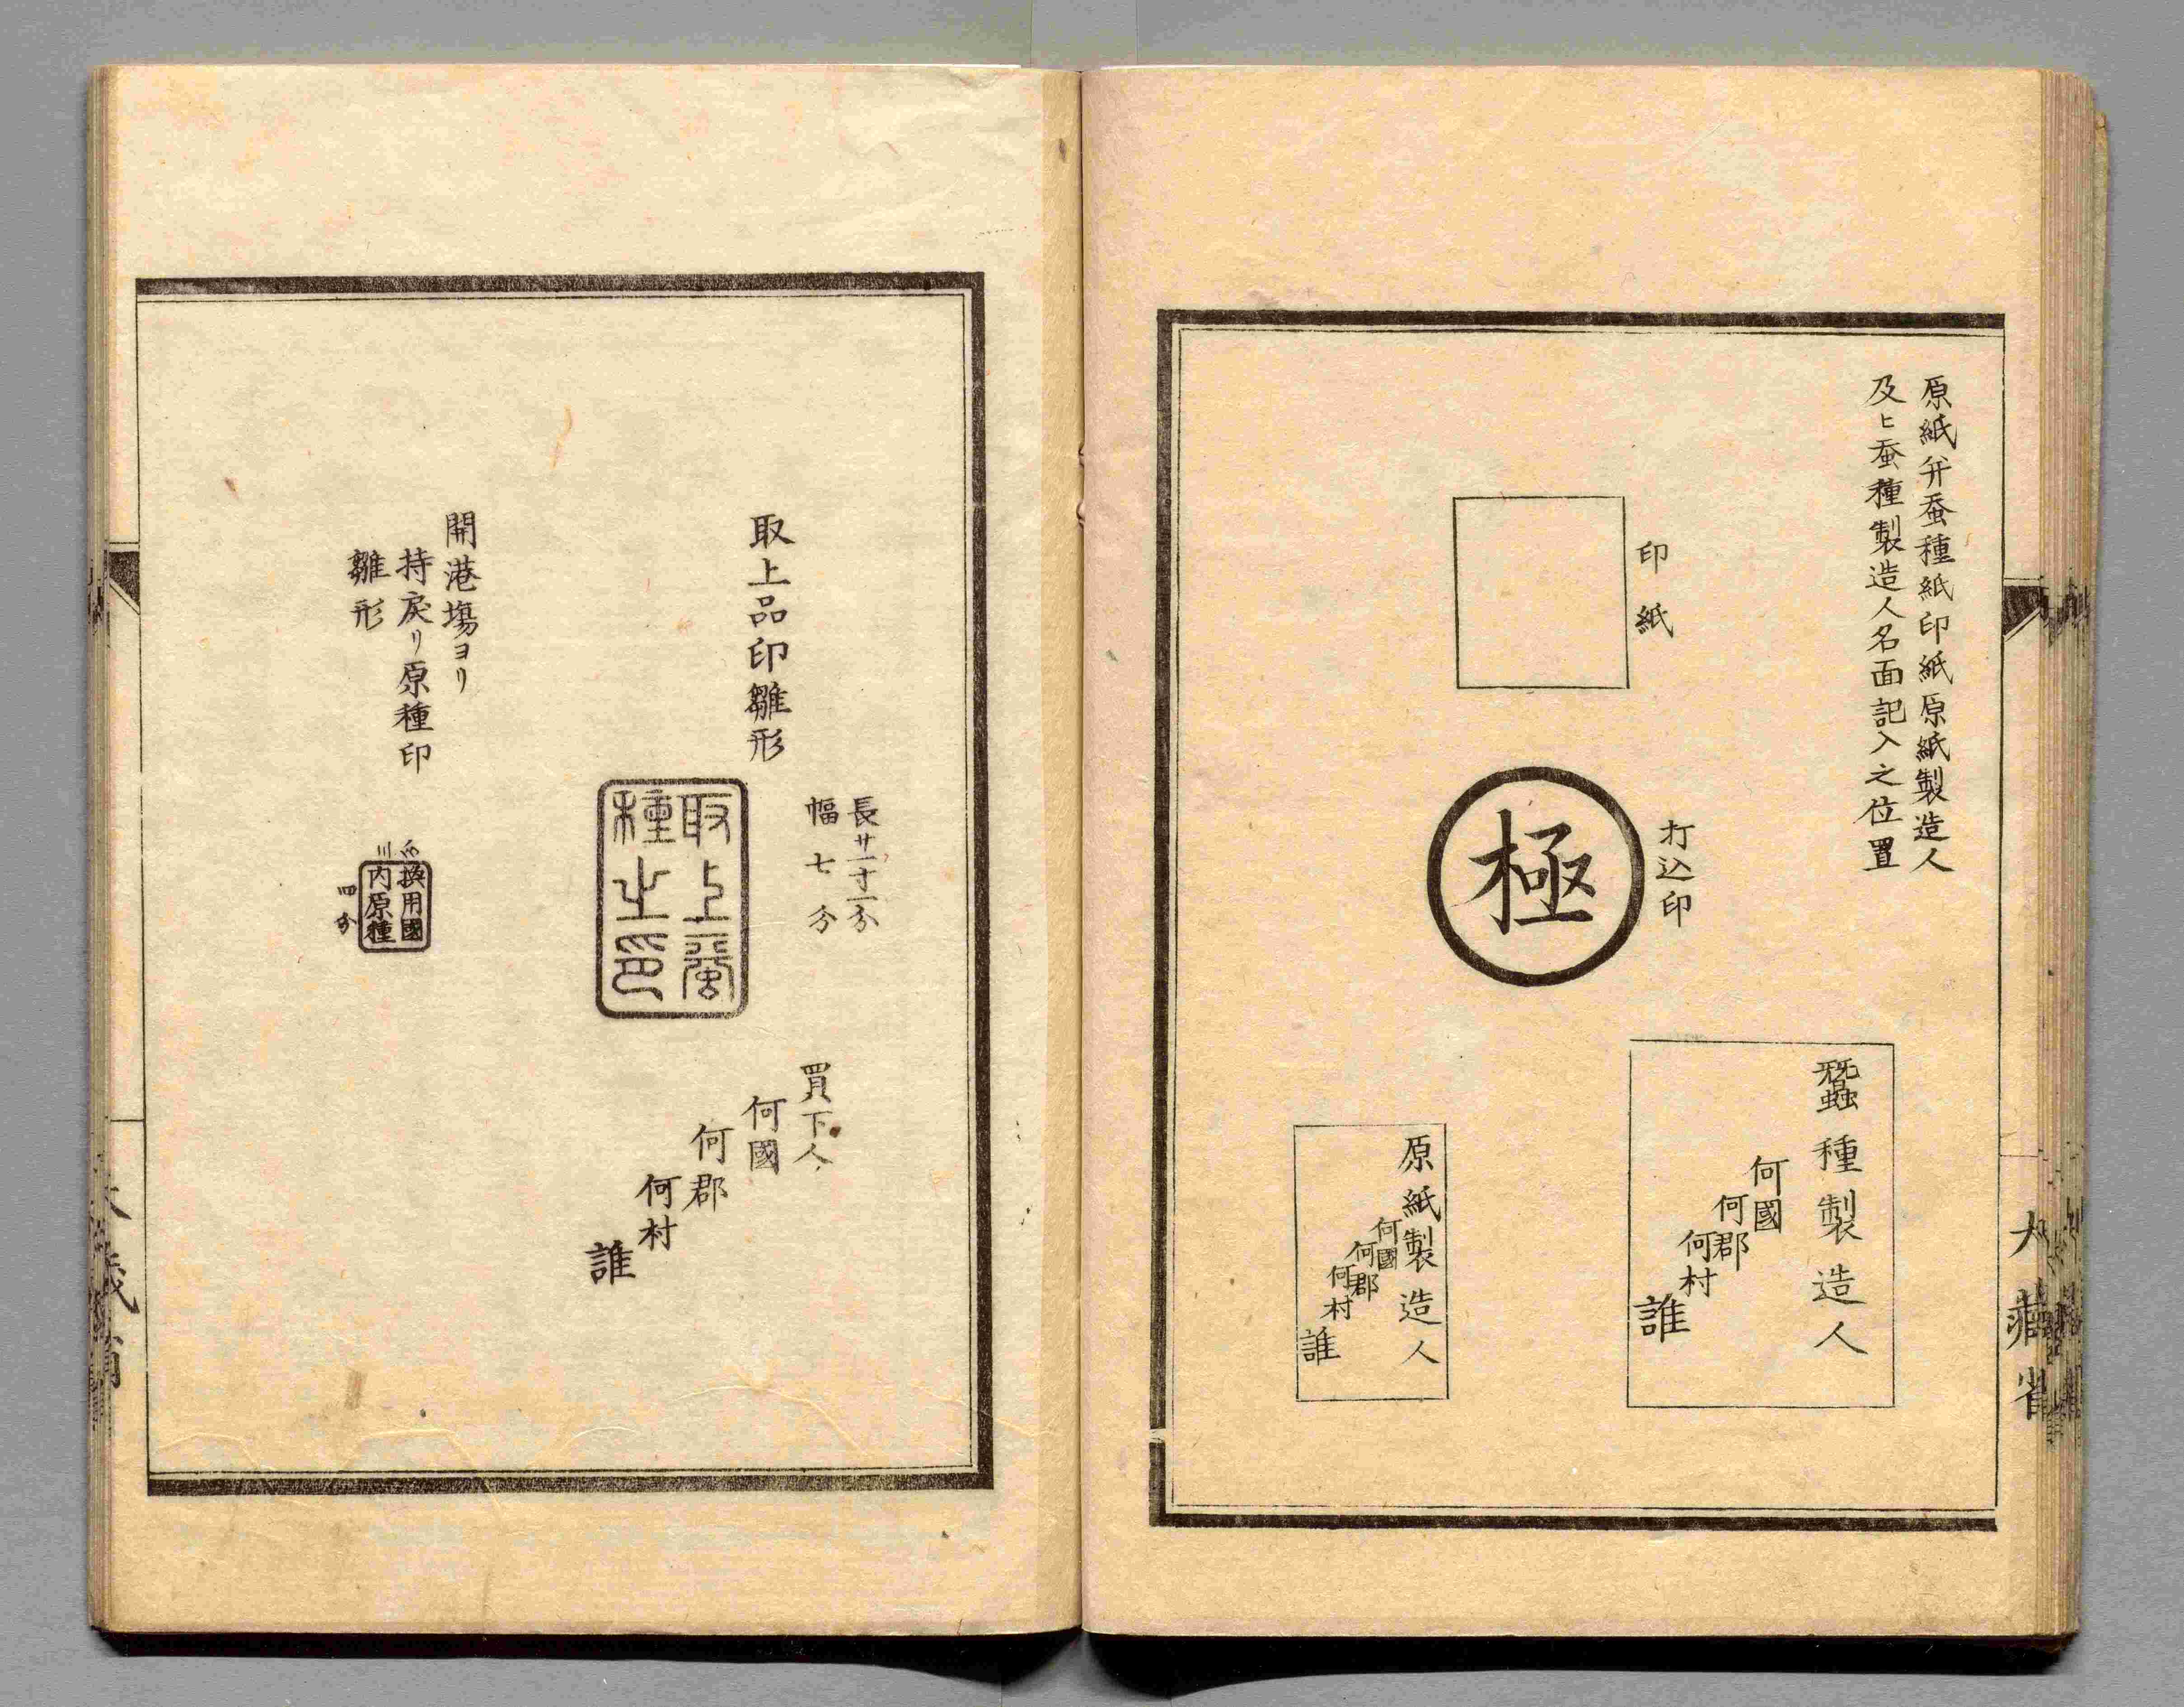 原紙并蚕種紙印紙原紙製造人
及ヒ蚕種製造人名面記入之位置
印紙
打込印
極
蠶種製造人
何國
何郡
何村
誰
原紙製造人
何國
何郡
何村
誰
大藏省
取上品印雛形
幅七分
取上蚕
種之印
買下人
何國
何郡
何村
誰
開港塲ヨリ
持戻リ原種印
雛形
換用國
内原種
四分